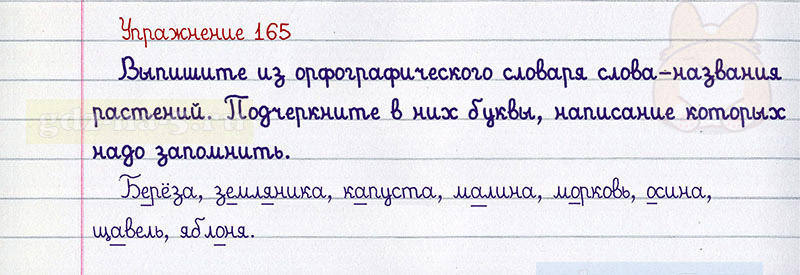 Упражнение 165
Выпишите из орфографического словаря слова-названия
растений. Подчеркните в них буквы, написание которых
надо запомнить.
Берёза, земляника, капуста, малина, морковь, осина,
щавель, яблоня.